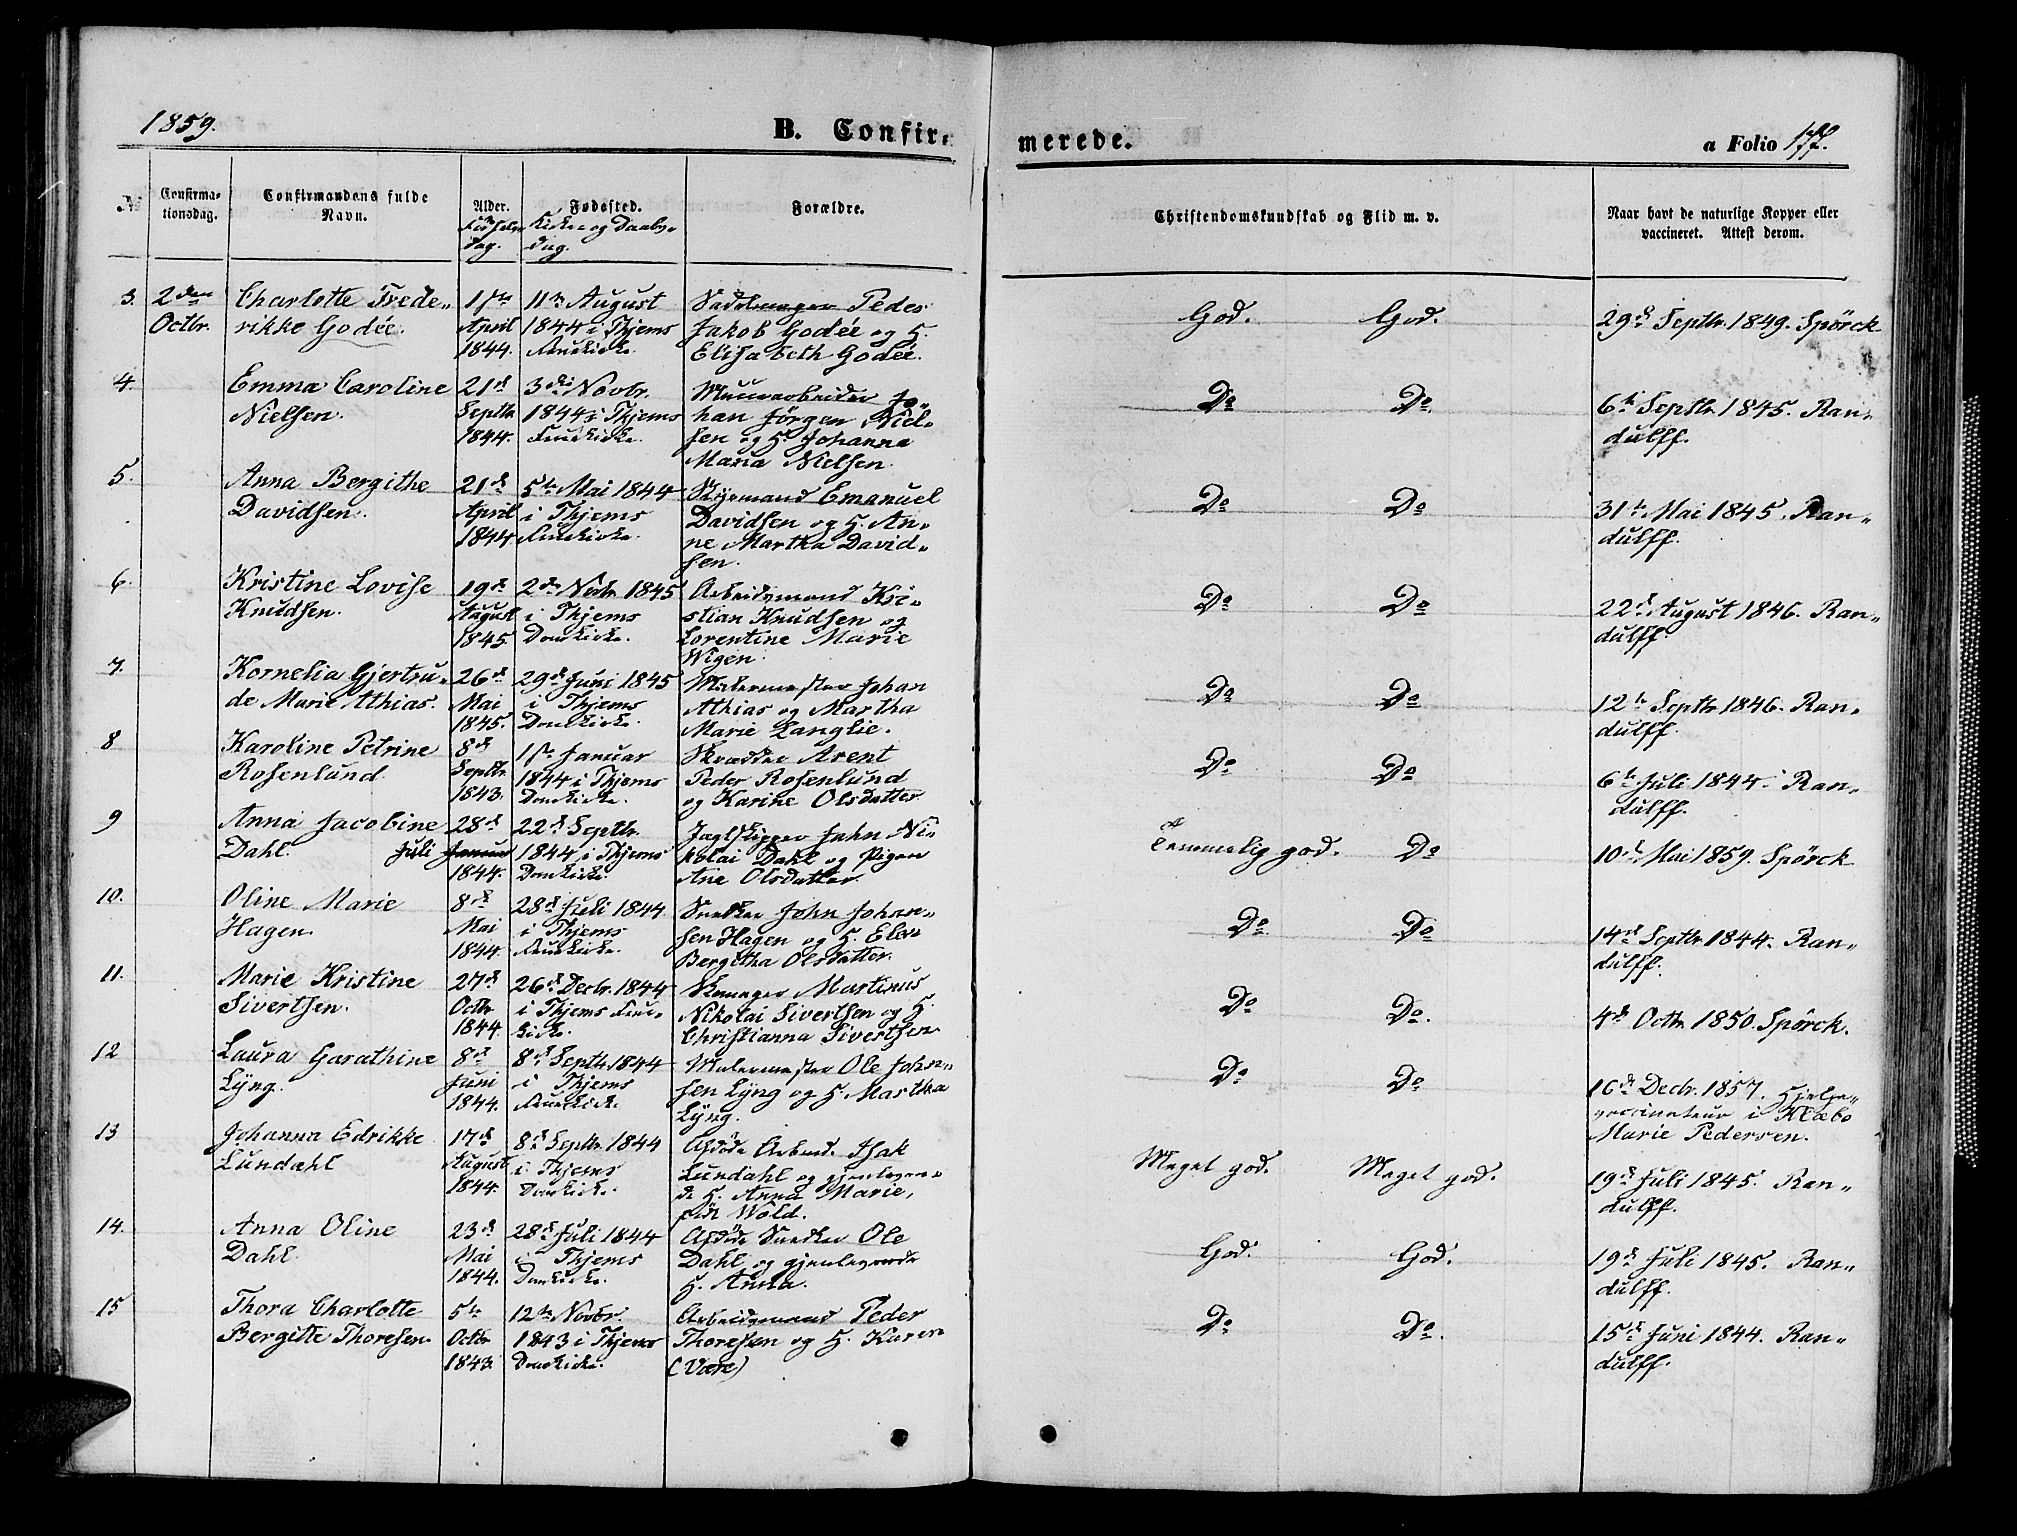 1859.
B. Confir-
merede.
a Folio 177.
No
Confirma-
tionsdag.
Confirmandens fulde
Navn.
Alder.
Fødsels-
dag.
Fødested.
Kirke og Daabs-
dag.
Forældre.
Christendomskundskab og Flid m. v.
Naar havt de naturlige Kopper eller
vaccineret. Attest derom.
3. 2den
Octbr.
Charlotte Frede-
rikke Godée.
1ste
April
1844.
11te August
1844 i Thjems
Fruekirke.
Sadelmager Peder
Jakob Godée og H.
Elisabeth Godée.
God. God.
29d Septbr 1849. Spörck
4.
Emma Caroline
Nielsen.
21d
Septbr
1844.
3die Novbr.
1844 i Thjems
Fruekirke.
Muurarbeider Jo-
han Jørgen Niel-
sen og H. Johanna
Maria Nielsen.
Do Do
6te Septbr 1845. Ran-
dulff.
5.
Anna Bergithe
Davidsen.
21d
April
1844
5te Mai 1844
i Thjems
Fruekirke.
Emanuel
Davidsen og H. An-
ne Martha David-
sen.
Do Do
31te Mai 1845. Ran-
dulff.
6.
Kristine Lovise
Knudsen.
19d
August
1845.
2den Novbr. 1845
i Thjems
Domkirke.
Arbeidsmand Kri-
stian Knudsen og
Lorentine Marie
Wigen.
Do Do
22d August 1846. Ran-
dulff
7.
Kornelia Gjertru-
de Marie Athias.
26d
Mai
1845.
29d Juni 1845
i Thjems
Domkirke.
Malermester Johan
Athias og Martha
Marie Langlie.
Do Do
12te Septbr 1846. Ran-
dulff.
8
Karoline Petrine
Rosenlund
8d
Septbr
1843.
1ste Januar
1844 i Thjems
Domkirke.
Skrædder Arent
Peder Rosenlund
og Karine Olsdatter
Do Do
6te Juli 1844. Ran-
dulff.
9
Anna Jacobine
Dahl.
28d
Juli Januar
1844.
22d Septbr.
1844 i Thjems
Domkirke.
Jagtskipper John Ni-
kolai Dahl og Pigen
Ane Olsdatter.
Temmelig god. Do
10d Mai 1859. Spörck
10.
Oline Marie
Hagen.
8d
Mai
1844.
28d Juli 1844
i Thjems
Fruekirke.
Snedker John Johan-
sen Hagen og H. Elen
Bergitha Olsdatter.
Do Do
14d Septbr 1844. Ran-
dulff.
11.
Marie Kristine
Sivertsen.
27d
Octbr
1844.
26d Decbr. 1844
i Thjems Frue-
kirke.
Martinus
Nikolai Sivertsen og H.
Christianna Sivertsen
Do Do.
4d Octbr 1850. Spörck.
12
Laura Garathine
Lyng.
8d
Juni
1844.
8d Septbr. 1844
i Thjems
Fruekirke
Malermester Ole John-
sen Lyng og H. Martha
Lyng.
Do Do
16de Decbr. 1857. Hjelpe-
vaccinateur i Klæbo
Marie Pedersen.
13
Johanna Edrikke
Lundahl
17d
August
1844.
8d Septbr. 1844
i Thjems
Domkirke.
Afdøde Arbmd. Isak
Lundahl og gjenleven-
de H. Anna Marie,
født Wold.
Meget god. Meget god.
19d Juli 1845. Ran-
dulff.
14.
Anna Oline
Dahl.
23d
Mai
1844.
28d Juli 1844
i Thjems
Domkirke.
Afdøde Snedker Ole
Dahl og gjenlevende
H. Anna.
God. God.
19d Juli 1845. Ran-
dulff.
15
Thora Charlotte
Bergitte Thoresen.
5te
Octbr
1843.
12te Novbr.
1843 i Thjems
Domkirke.
Arbeidsmand Peder
Thoresen og H. Karen
(Være)
Do Do.
15d Juni 1844. Ran-
dulff.